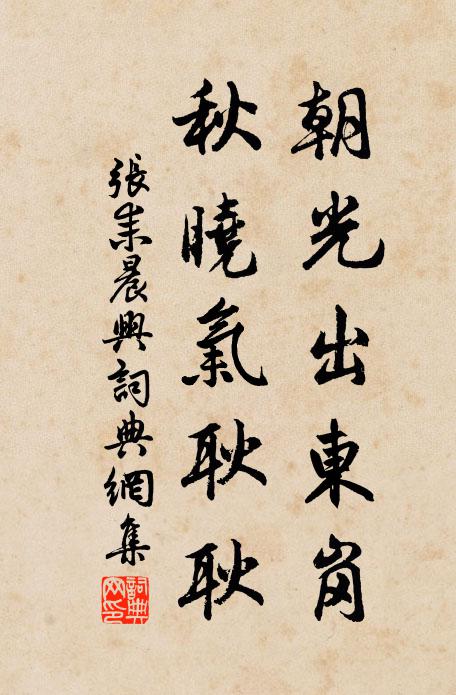 朝光出東崗
秋曉氣耿耿
張耒晨興詞典網集
詞典网印